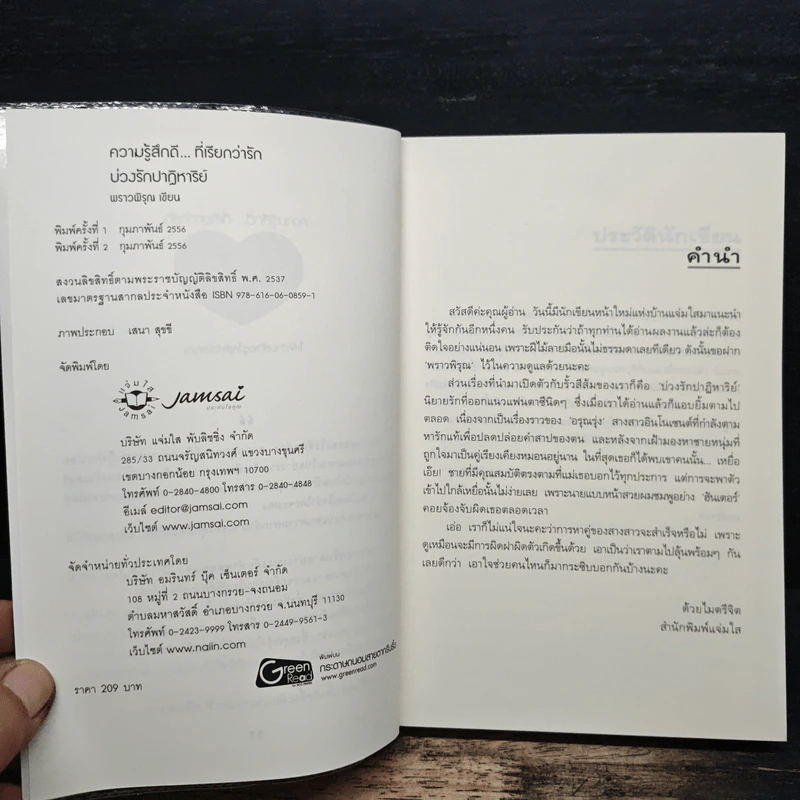 ความรู้สึกดี... ที่เรียกว่ารัก
บ่วงรักปาฏิหาริย์
พราวพิรุณ เขียน
พิมพ์ครั้งที่ 1 กุมภาพันธ์ 2556
พิมพ์ครั้งที่ 2 กุมภาพันธ์ 2556
สงวนลิขสิทธิ์ตามพระราชบัญญัติลิขสิทธิ์ พ.ศ. 2537
เลขมาตรฐานสากลประจำหนังสือ ISBN 978-616-06-0859-1
ภาพประกอบ เสนา สุขขี
จัดพิมพ์โดย
แจ่มใส
Jamsai
jamsai
บริษัท แจ่มใส พับลิชชิ่ง จำกัด
285/33 ถนนจรัญสนิทวงศ์ แขวงบางขุนศรี
เขตบางกอกน้อย กรุงเทพฯ 10700
โทรศัพท์ 0-2840-4800 โทรสาร 0-2840-4848
อีเมล์ editor@jamsai.com
เว็บไซต์ www.jamsai.com
จัดจำหน่ายทั่วประเทศโดย
บริษัท อมรินทร์ บุ๊ค เซ็นเตอร์ จำกัด
108 หมู่ที่ 2 ถนนบางกรวย-จงถนอม
ตำบลมหาสวัสดิ์ อำเภอบางกรวย จ.นนทบุรี 11130
โทรศัพท์ 0-2423-9999 โทรสาร 0-2449-9561-3
เว็บไซต์ www.naiin.com
Green Read
พิมพ์บน
กระดาษถนอมสายตากรีนรี้ด
www.greenread.com
ราคา 209 บาท
คำนำ
สวัสดีค่ะคุณผู้อ่าน วันนี้มีนักเขียนหน้าใหม่แห่งบ้านแจ่มใสมาแนะนำ
ให้รู้จักกันอีกหนึ่งคน รับประกันว่าถ้าทุกท่านได้อ่านผลงานแล้วล่ะก็ต้อง
ติดใจอย่างแน่นอน เพราะฝีไม้ลายมือนั้นไม่ธรรมดาเลยทีเดียว ดังนั้นขอฝาก
'พราวพิรุณ' ไว้ในความดูแลด้วยนะคะ
ส่วนเรื่องที่นำมาเปิดตัวกับรั้วสีส้มของเราก็คือ 'บ่วงรักปาฏิหาริย์'
นิยายรักที่ออกแนวแฟนตาซีนิดๆ ซึ่งเมื่อเราได้อ่านแล้วก็แอบยิ้มตามไป
ตลอด เนื่องจากเป็นเรื่องราวของ 'อรุณรุ่ง' สางสาวอินโนเซนต์ที่กำลังตาม
หารักแท้เพื่อปลดปล่อยคำสาปของตน และหลังจากเฝ้ามองหาชายหนุ่มที่
ถูกใจมาเป็นคู่เรียงเคียงหมอนอยู่นาน ในที่สุดเธอก็ได้พบเขาคนนั้น... เหยื่อ
เอ๊ย! ชายที่มีคุณสมบัติตรงตามที่แม่เธอบอกไว้ทุกประการ แต่การจะพาตัว
เข้าไปใกล้เหยื่อนั้นไม่ง่ายเลย เพราะนายแบบหน้าสวยผมชมพูอย่าง 'ฮันเตอร์'
คอยจ้องจับผิดเธอตลอดเวลา
เอ่อ เราก็ไม่แน่ใจนะคะว่าการหาคู่ของสางสาวจะสำเร็จหรือไม่ เพราะ
ดูเหมือนจะมีการผิดฝาผิดตัวเกิดขึ้นด้วย เอาเป็นว่าเราตามไปลุ้นพร้อมๆ กัน
เลยดีกว่า เอาใจช่วยคนไหนก็มากระซิบบอกกันบ้างนะคะ
ด้วยไมตรีจิต
สำนักพิมพ์แจ่มใส